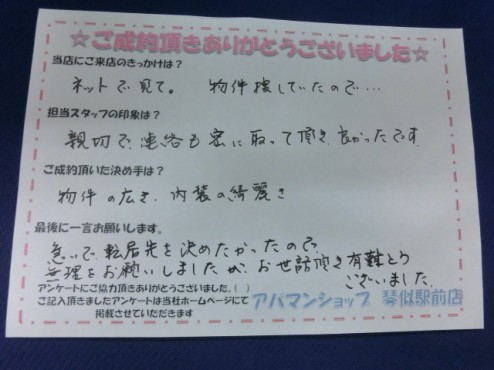 ☆ご成約頂きありがとうございました☆
当店にご来店のきっかけは?
ネットで見て。 物件探していたので…
担当スタッフの印象は?
親切で連絡も密に取って頂き、良かったです。
ご成約頂いた決め手は?
物件の広さ、内装の綺麗さ
最後に一言お願いします。
急いで転居先を決めたかったので、
無理をお願いしましたが、お世話頂き有難とう
ございました。
アンケートにご協力頂きありがとうございました。( )
ご記入頂きましたアンケートは当社ホームページにて
掲載させていただきます
アパマンショップ 琴似駅前店